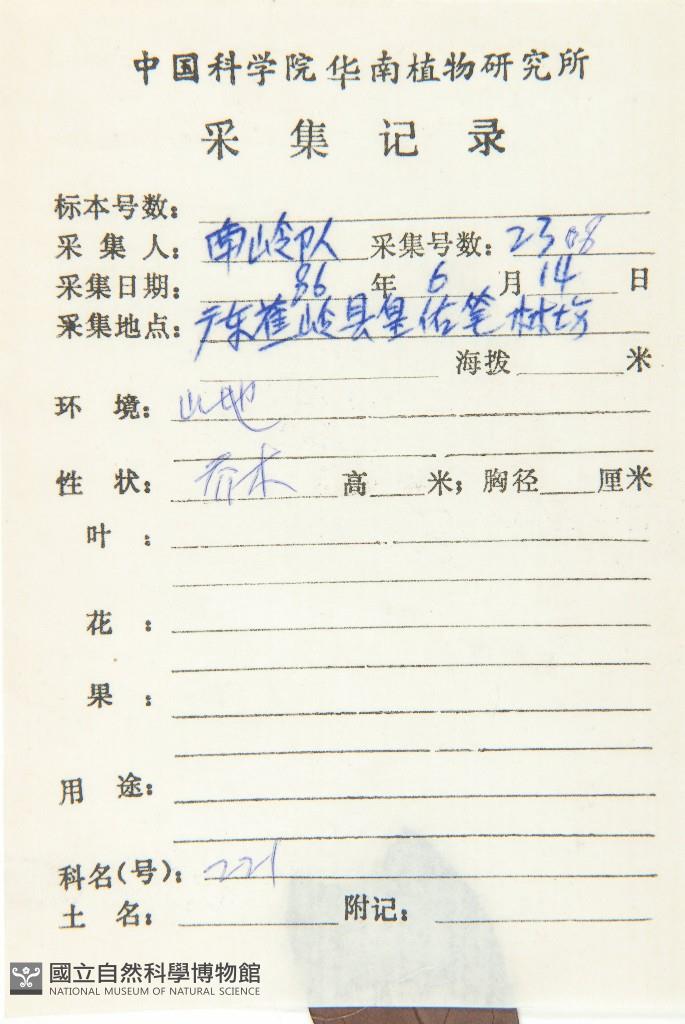 中国科学院华南植物研究所
采集记录
标本号数：
采集人：南岭队 采集号数：2308
采集日期：86年6月14日
采集地点：广东蕉岭县皇佑笔林场
海拨 米
环境：山地
性状：乔木 高 米；胸径 厘米
叶：
花：
果：
用途：
科名(号)：221
土名： 附记：
國立自然科學博物館
NATIONAL MUSEUM OF NATURAL SCIENCE